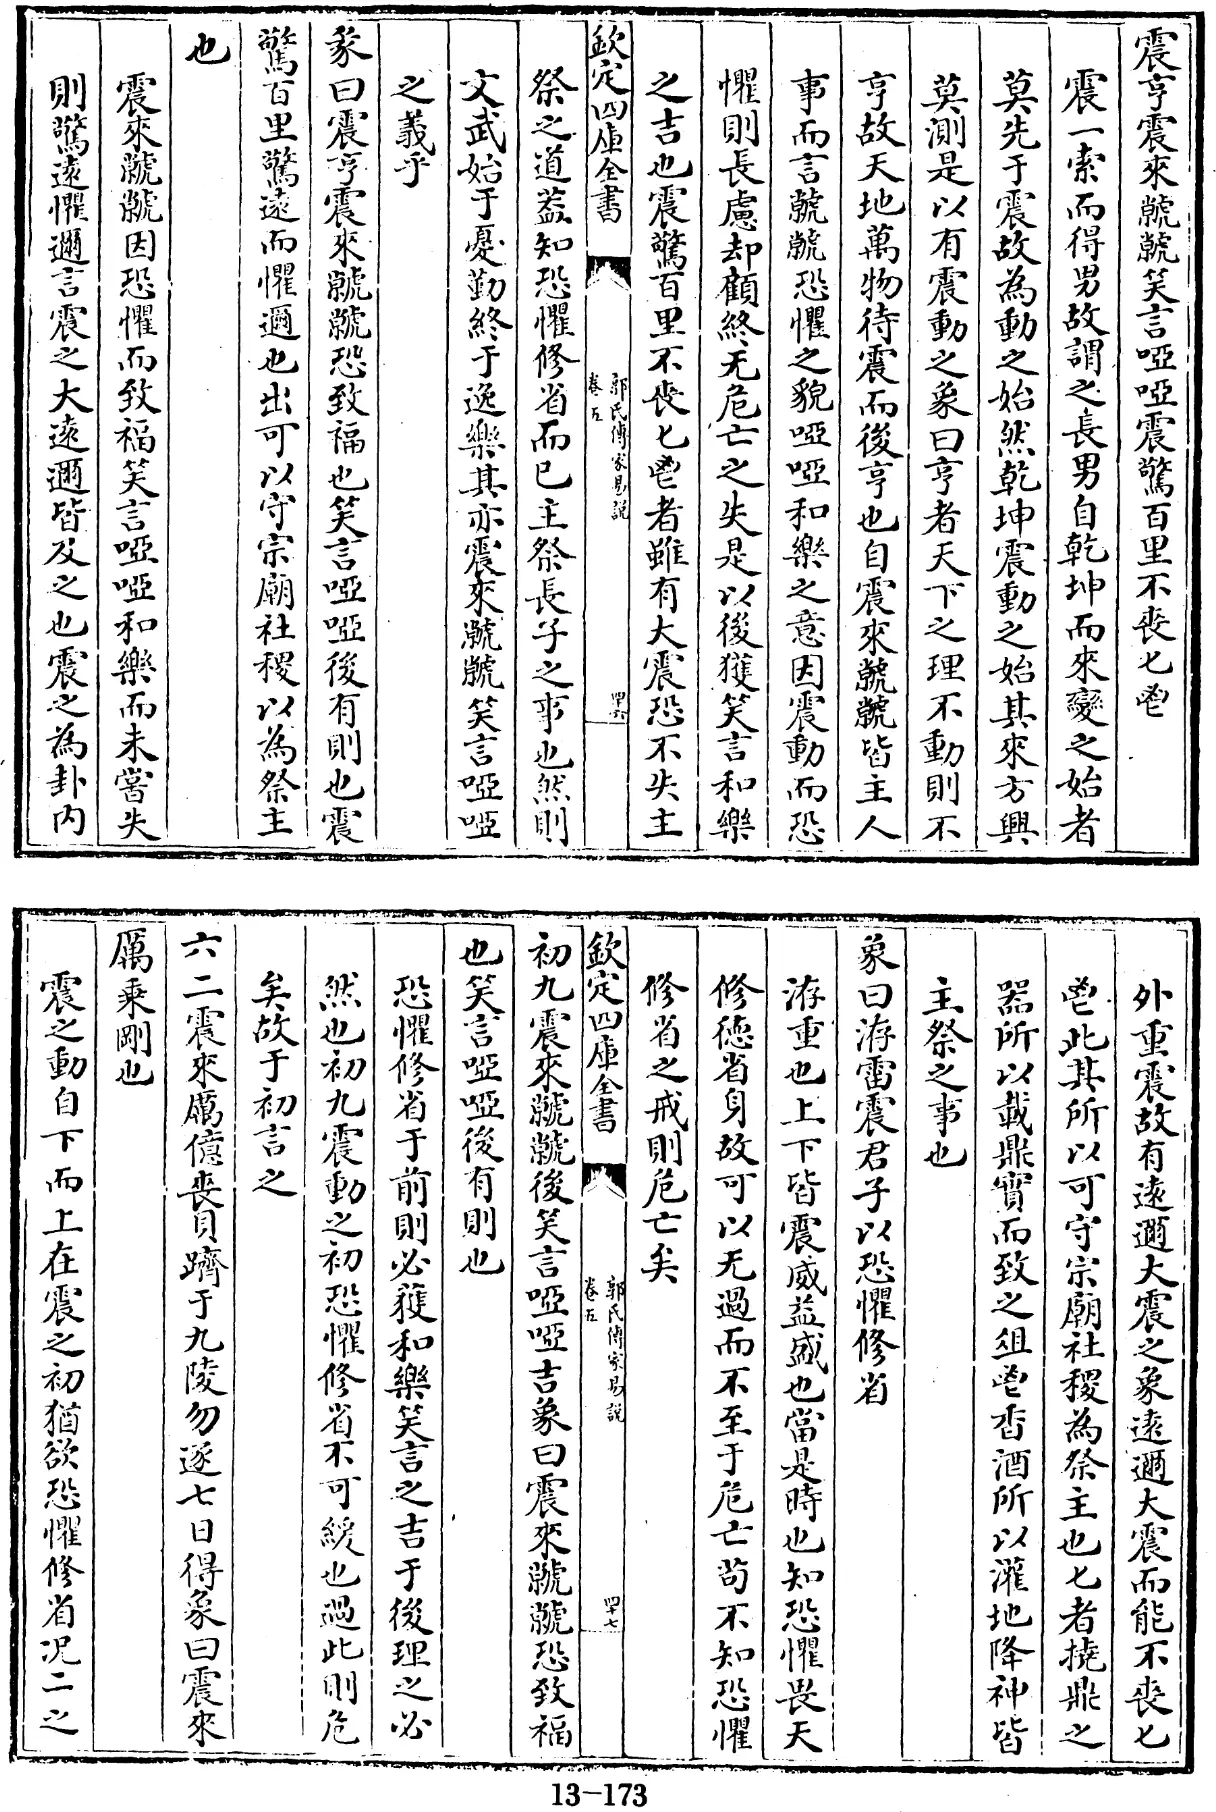 震亨震來虩虩笑言啞啞震驚百里不喪匕鬯
震一索而得男故謂之長男自乾坤而來變之始者
莫先于震故為動之始然乾坤震動之始其來方興
莫測是以有震動之象曰亨者天下之理不動則不
亨故天地萬物待震而後亨也自震來虩虩皆主人
事而言虩虩恐懼之貌啞啞和樂之意因震動而恐
懼則長慮却顧終无危亡之失是以後獲笑言和樂
之吉也震驚百里不喪匕鬯者雖有大震恐不失主
欽定四庫全書
郭氏傳家易說
卷五
四十六
祭之道葢知恐懼修省而已主祭長子之事也然則
文武始于憂勤終于逸樂其亦震來虩虩笑言啞啞
之義乎
彖曰震亨震來虩虩恐致福也笑言啞啞後有則也震
驚百里驚遠而懼邇也出可以守宗廟社稷以為祭主
也
震來虩虩因恐懼而致福笑言啞啞和樂而未嘗失
則驚遠懼邇言震之大遠邇皆及之也震之為卦內
外重震故有遠邇大震之象遠邇大震而能不喪匕
鬯此其所以可守宗廟社稷為祭主也匕者撓鼎之
器所以載鼎實而致之俎鬯香酒所以灌地降神皆
主祭之事也
象曰洊雷震君子以恐懼修省
洊重也上下皆震威益盛也當是時也知恐懼畏天
修德省身故可以无過而不至于危亡苟不知恐懼
修省之戒則危亡矣
欽定四庫全書
郭氏傳家易說
卷五
四十七
初九震來虩虩後笑言啞啞吉象曰震來虩虩恐致福
也笑言啞啞後有則也
恐懼修省于前則必獲和樂笑言之吉于後理之必
然也初九震動之初恐懼修省不可緩也過此則危
矣故于初言之
六二震來厲億喪貝躋于九陵勿逐七日得象曰震來
厲乘剛也
震之動自下而上在震之初猶欲恐懼修省况二之
13-173